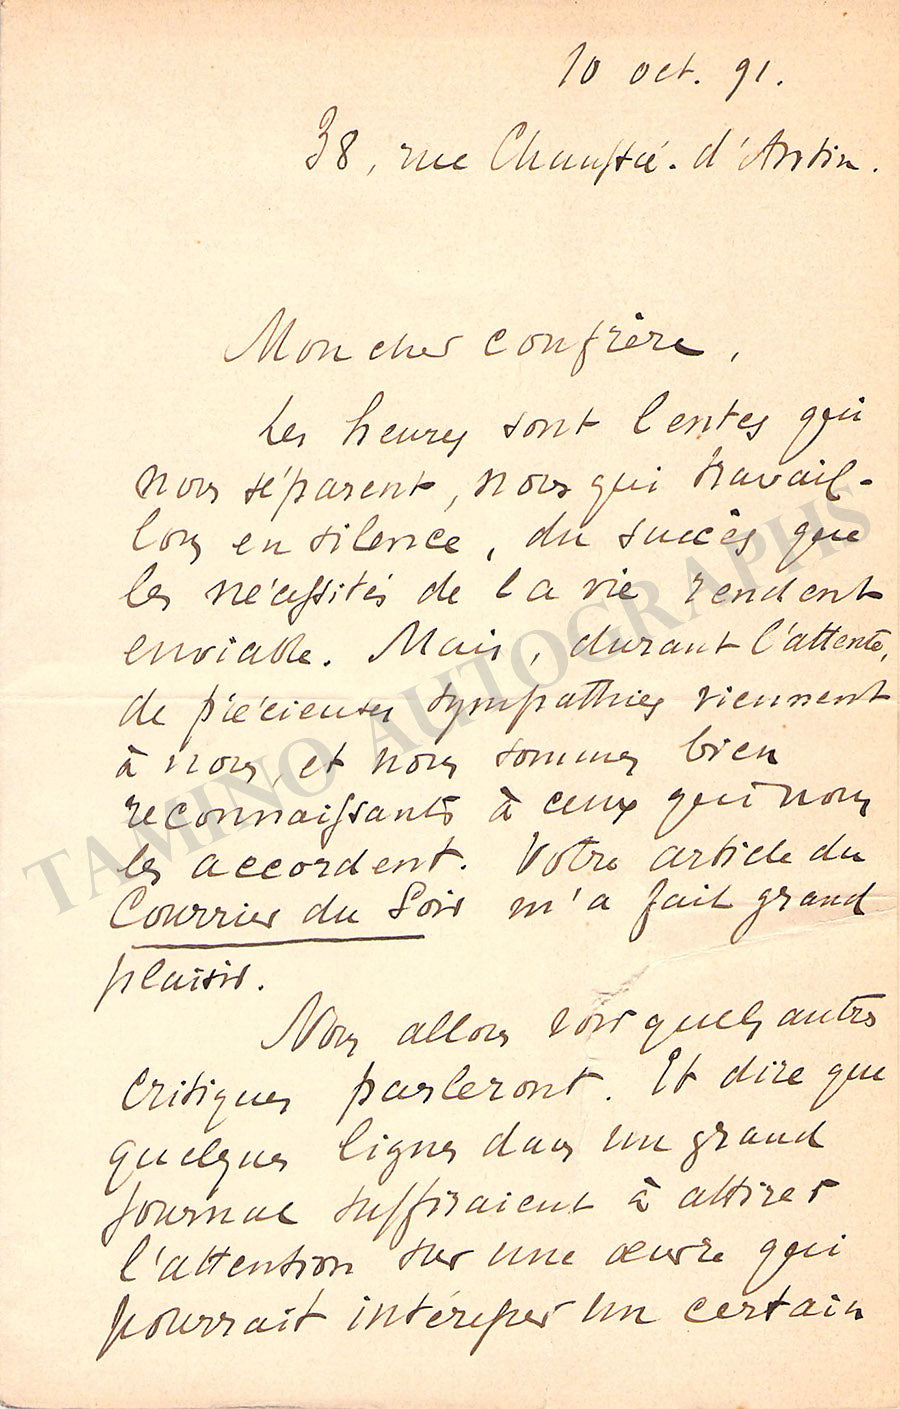 10 oct. 91.
38, rue Chaussée. d'Antin.
Mon cher confrère,
Les heures sont lentes qui
nous séparent, nous qui travail-
lons en silence, du succès que
les nécessités de la vie rendent
enviable. Mais, durant l'attente,
de précieuses sympathies viennent
à nous, et nous sommes bien
reconnaissants à ceux qui nous
les accordent. Votre article du
Courrier du Soir m'a fait grand
plaisir.
Nous allons voir quels autres
critiques parleront. Et dire que
quelques lignes dans un grand
journal suffiraient à attirer
l'attention sur une œuvre qui
pourrait intéresser un certain
TAMINO AUTOGRAPHS